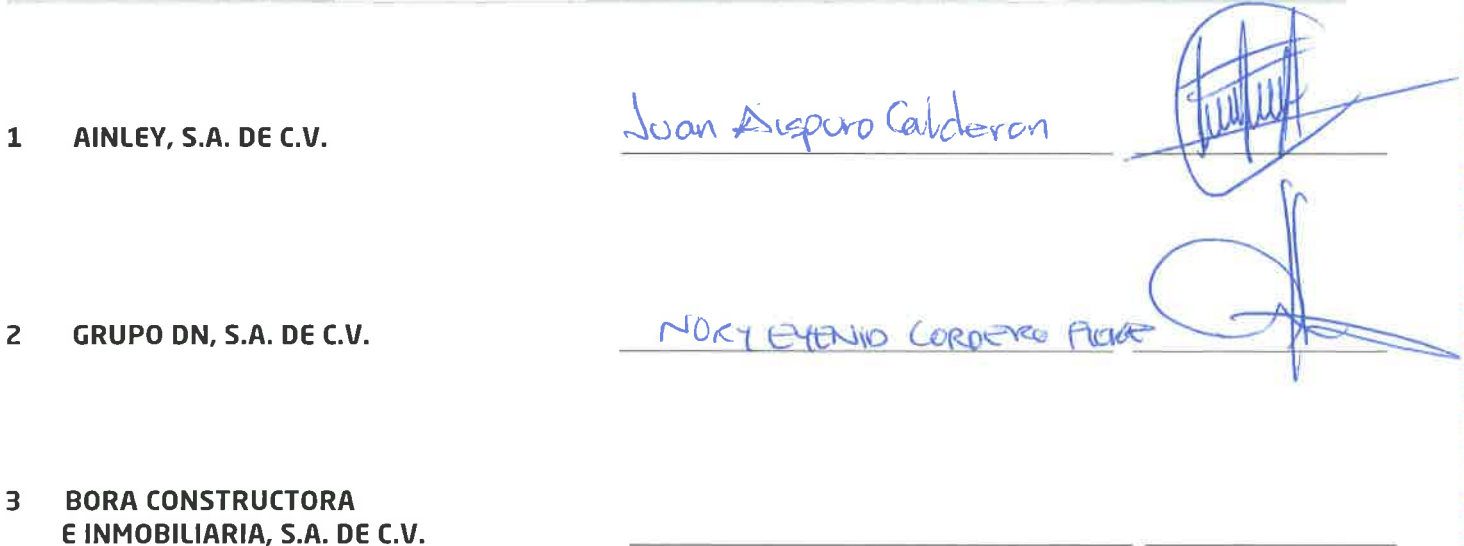 1 AINLEY, S.A. DE C.V. Juan Aispuro Calderon
2 GRUPO DN, S.A. DE C.V. CORDERO
3 BORA CONSTRUCTORA
E INMOBILIARIA, S.A. DE C.V.